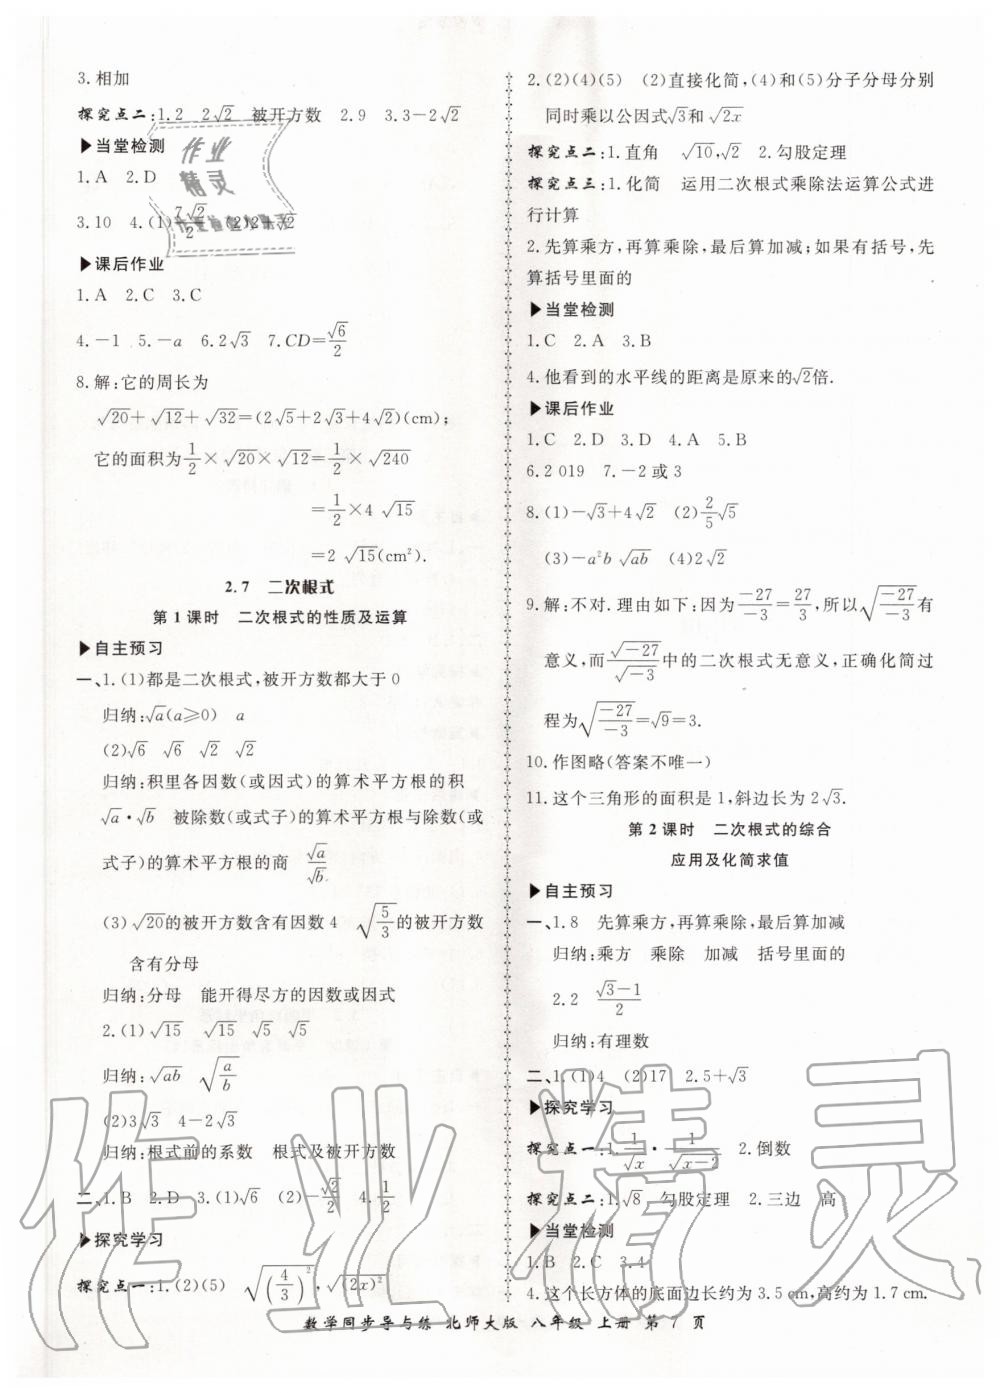 3.相加
探究点二:1.2　2√2　被开方数　2.9　3.3－2√2
▶当堂检测
1.A　2.D
3.10　4.(1)7√2/2　(2)2+√2
▶课后作业
1.A　2.C　3.C
4.－1　5.－a　6.2√3　7.CD=√6/2
8.解:它的周长为
√20+√12+√32=(2√5+2√3+4√2)(cm);
它的面积为1/2×√20×√12=1/2×√240
=1/2×4√15
=2√15(cm²).
2.7　二次根式
第1课时　二次根式的性质及运算
▶自主预习
一、1.(1)都是二次根式,被开方数都大于0
归纳:√a(a≥0)　a
(2)√6　√6　√2　√2
归纳:积里各因数(或因式)的算术平方根的积
√a·√b　被除数(或式子)的算术平方根与除数(或
式子)的算术平方根的商　√a/√b
(3)√20的被开方数含有因数4　√(5/3)的被开方数
含有分母
归纳:分母　能开得尽方的因数或因式
2.(1)√15　√15　√5　√5
归纳:√ab　√(a/b)
(2)3√3　4－2√3
归纳:根式前的系数　根式及被开方数
二、1.B　2.D　3.(1)√6　(2)－√2/2　4.1/2
▶探究学习
探究点一:1.(2)(5)　√(4/3)²·√(2x)²
2.(2)(4)(5)　(2)直接化简,(4)和(5)分子分母分别
同时乘以公因式√3和√2x
探究点二:1.直角　√10,√2　2.勾股定理
探究点三:1.化简　运用二次根式乘除法运算公式进
行计算
2.先算乘方,再算乘除,最后算加减;如果有括号,先
算括号里面的
▶当堂检测
1.C　2.A　3.B
4.他看到的水平线的距离是原来的√2倍.
▶课后作业
1.C　2.D　3.D　4.A　5.B
6.2 019　7.－2或3
8.(1)－√3+4√2　(2)2/5√5
(3)－a²b√ab　(4)2√2
9.解:不对.理由如下:因为－27/－3=27/3,所以√(－27/－3)有
意义,而√－27/√－3中的二次根式无意义,正确化简过
程为√(－27/－3)=√9=3.
10.作图略(答案不唯一)
11.这个三角形的面积是1,斜边长为2√3.
第2课时　二次根式的综合
应用及化简求值
▶自主预习
一、1.8　先算乘方,再算乘除,最后算加减
归纳:乘方　乘除　加减　括号里面的
2.2　(√3－1)/2
归纳:有理数
二、1.(1)4　(2)17　2.5+√3
▶探究学习
探究点一:1.1/√x·1/√(x－2)　2.倒数
探究点二:1.√8　勾股定理　2.三边　高
▶当堂检测
1.B　2.C　3.4
4.这个长方体的底面边长约为3.5 cm,高约为1.7 cm.
数学同步导与练　北师大版　八年级　上册　第7页
作业精灵
作业精灵